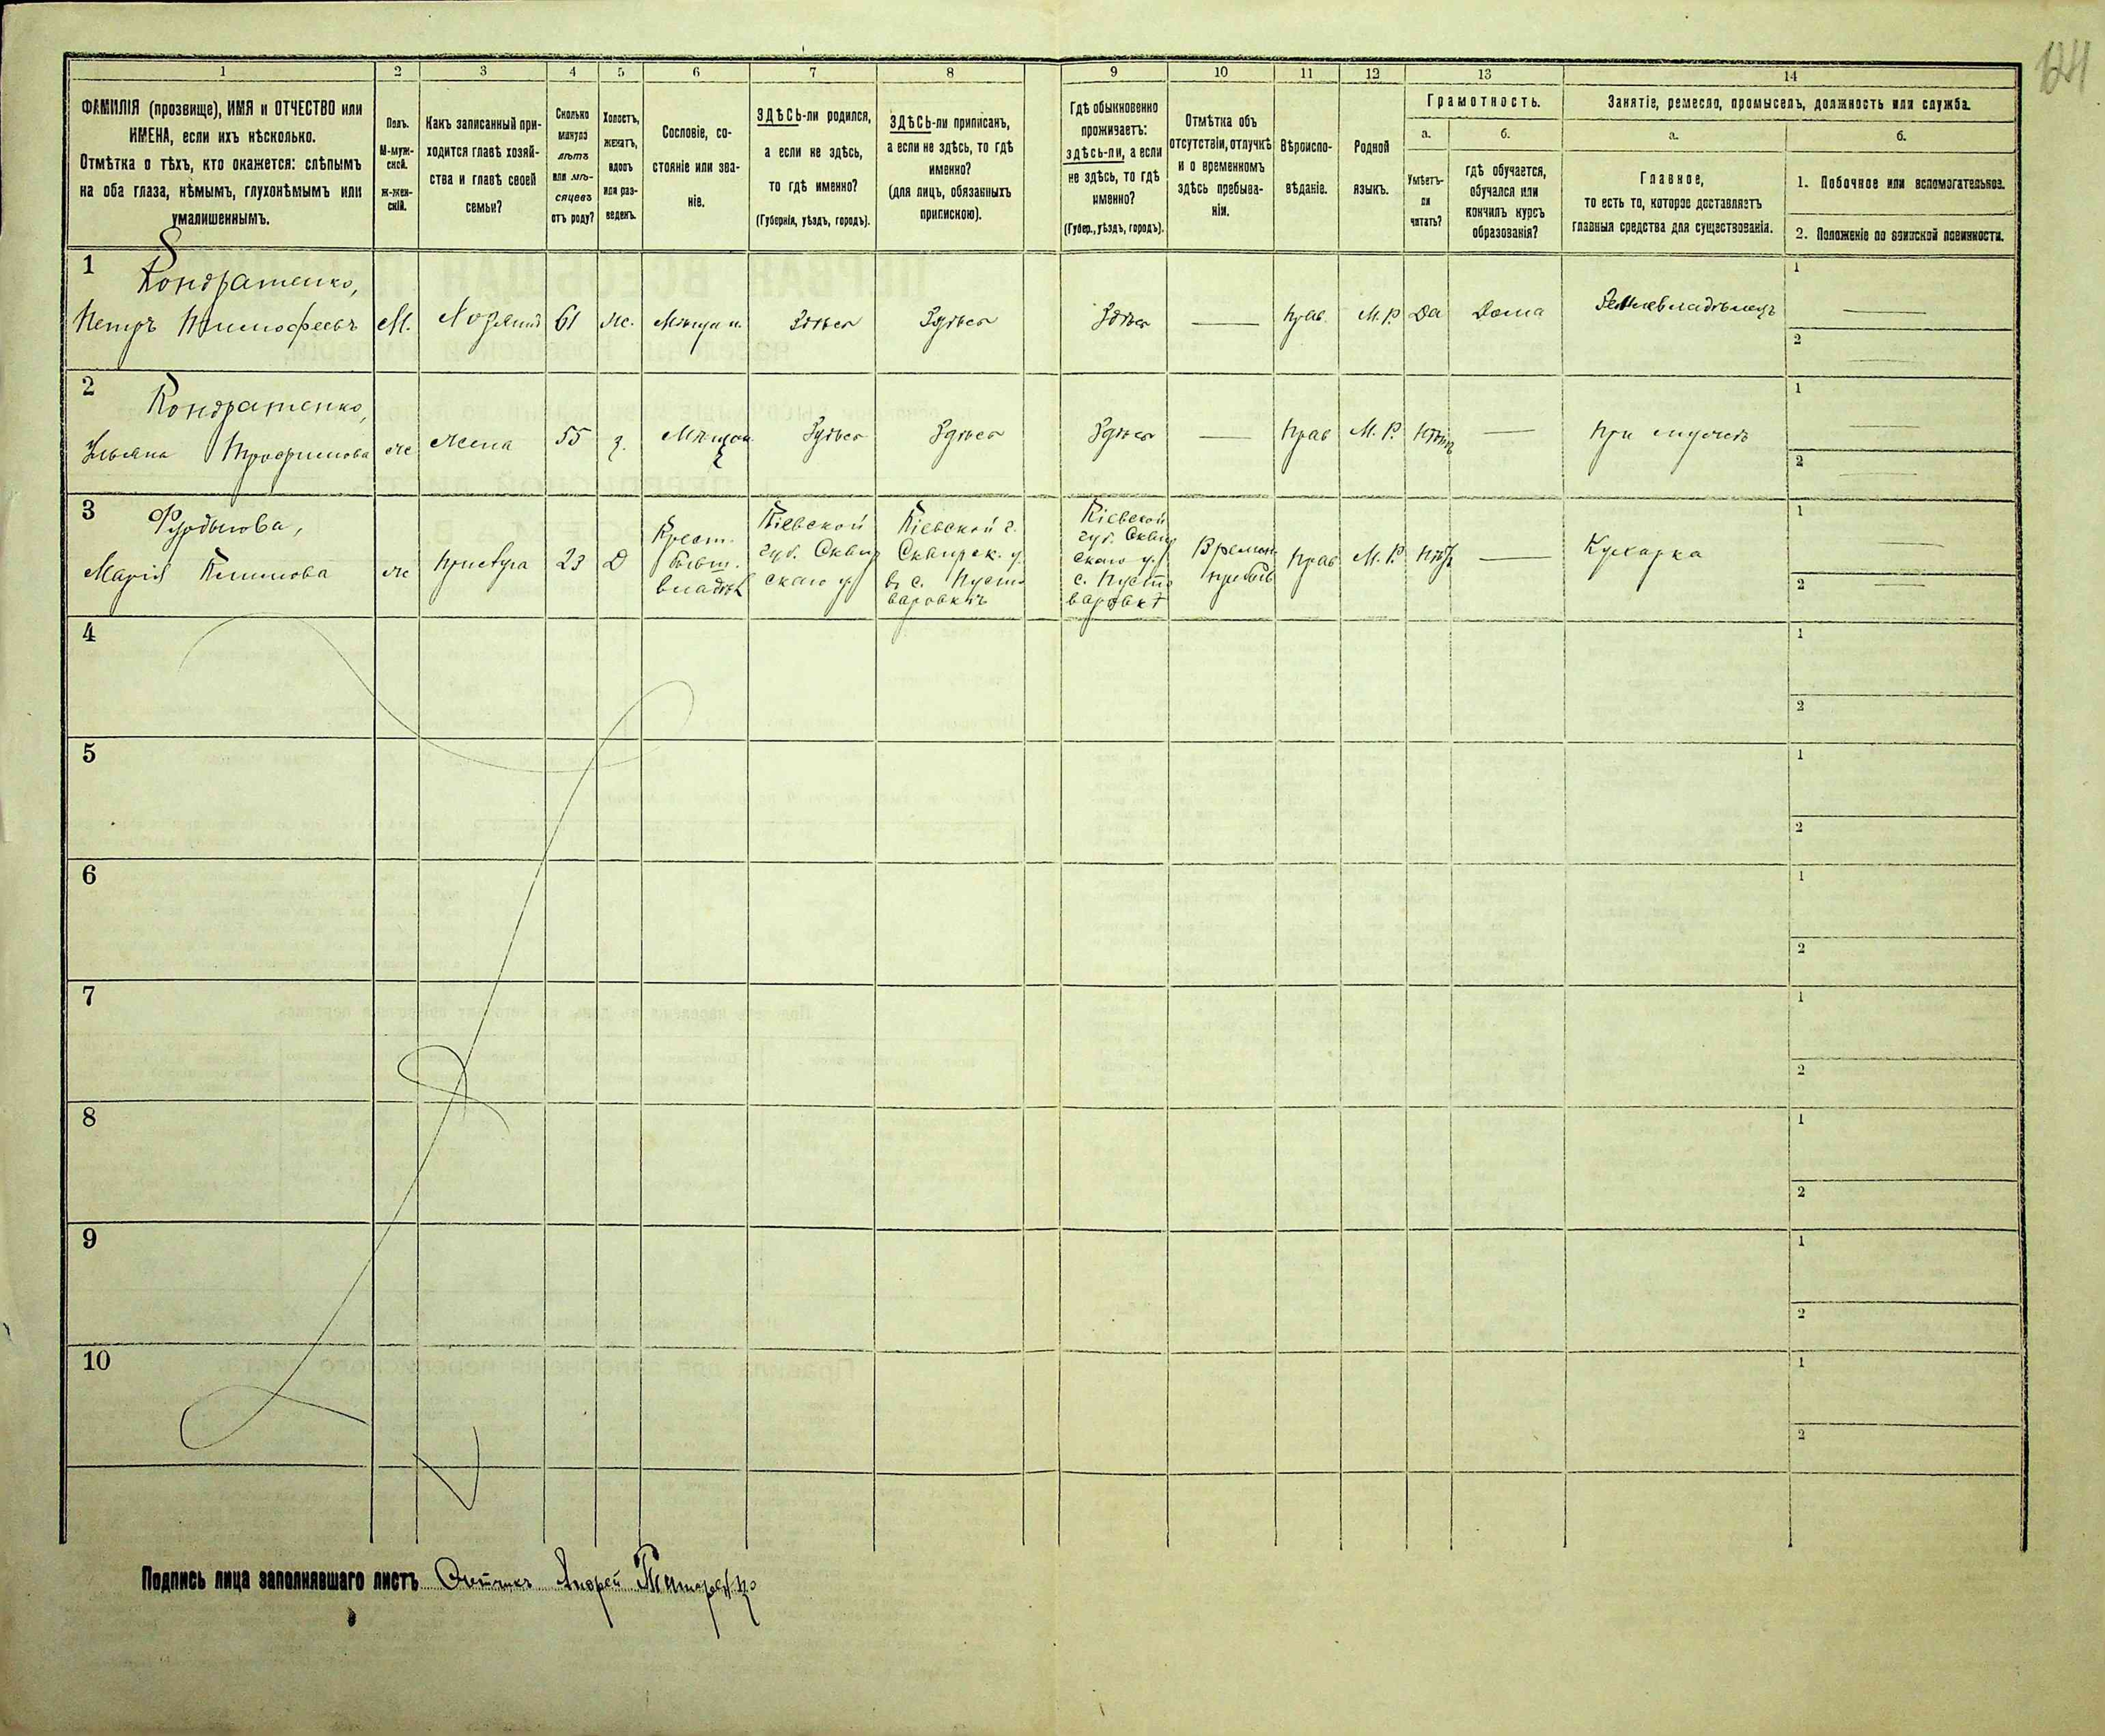 124
1 2 3 4 5 6 7 8 9 10 11 12 13 14
ФАМИЛІЯ (прозвище), ИМЯ и ОТЧЕСТВО или
ИМЕНА, если ихъ нѣсколько.
Отмѣтка о тѣхъ, кто окажется: слѣпымъ
на оба глаза, нѣмымъ, глухонѣмымъ или
умалишеннымъ.
Полъ.
М-муж-
ской.
ж-жен-
скій.
Какъ записанный при-
ходится главѣ хозяй-
ства и главѣ своей
семьи?
Сколько
минуло
лѣтъ
или мѣ-
сяцевъ
отъ роду?
Холостъ,
женатъ,
вдовъ
или раз-
веденъ.
Сословіе, со-
стояніе или зва-
ніе.
ЗДѢСЬ-ли родился,
а если не здѣсь,
то гдѣ именно?
(Губернія, уѣздъ, городъ).
ЗДѢСЬ-ли приписанъ,
а если не здѣсь, то гдѣ
именно?
(для лицъ, обязанныхъ
припискою).
Гдѣ обыкновенно
проживаетъ:
здѣсь-ли, а если
не здѣсь, то гдѣ
именно?
(Губер., уѣздъ, городъ).
Отмѣтка объ
отсутствіи, отлучкѣ
и о временномъ
здѣсь пребыва-
ніи.
Вѣроиспо-
вѣданіе.
Родной
языкъ.
Грамотность.
а.
Умѣетъ-
ли
читать?
б.
гдѣ обучается,
обучался или
кончилъ курсъ
образованія?
Занятіе, ремесло, промыселъ, должность или служба.
а.
Главное,
то есть то, которое доставляетъ
главныя средства для существованія.
б.
1. Побочное или вспомогательное.
2. Положеніе по воинской повинности.
1
Кондратенко,
Петръ Тимофеевъ М. Хозяинъ 61 ж. Мѣщан. Здѣсь Здѣсь Здѣсь — Прав. М.Р. Да Дома Землевладѣлецъ
1 —
2 —
2
Кондратенко,
Ульяна Трофимова ж Жена 55 з. Мѣщан Здѣсь Здѣсь Здѣсь — Прав М.Р. Нѣтъ — При мужѣ
1 —
2 —
3
Мария Климова ж Прислуга 23 Д
Крест.
бывш.
владѣл
Кіевской
губ. Сквир
скаго у.
Кіевской г.
Сквирск. у.
в с. Пусто
варовкѣ
Кіевской
губ. Сквир
скаго у.
с. Пусто
варовкѣ
Времен
пребыв
Прав М.Р. Нѣтъ — Кухарка
1 —
2 —
4
1
2
5
1
2
6
1
2
7
1
2
8
1
2
9
1
2
10
1
2
Подпись лица заполнявшаго листъ Счетчикъ Андрей